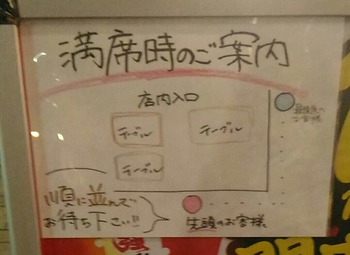 満席時のご案内
店内入口
テーブル
テーブル
テーブル
最後尾の
お客様
順に並んで
お待ち下さい!!
先頭のお客様